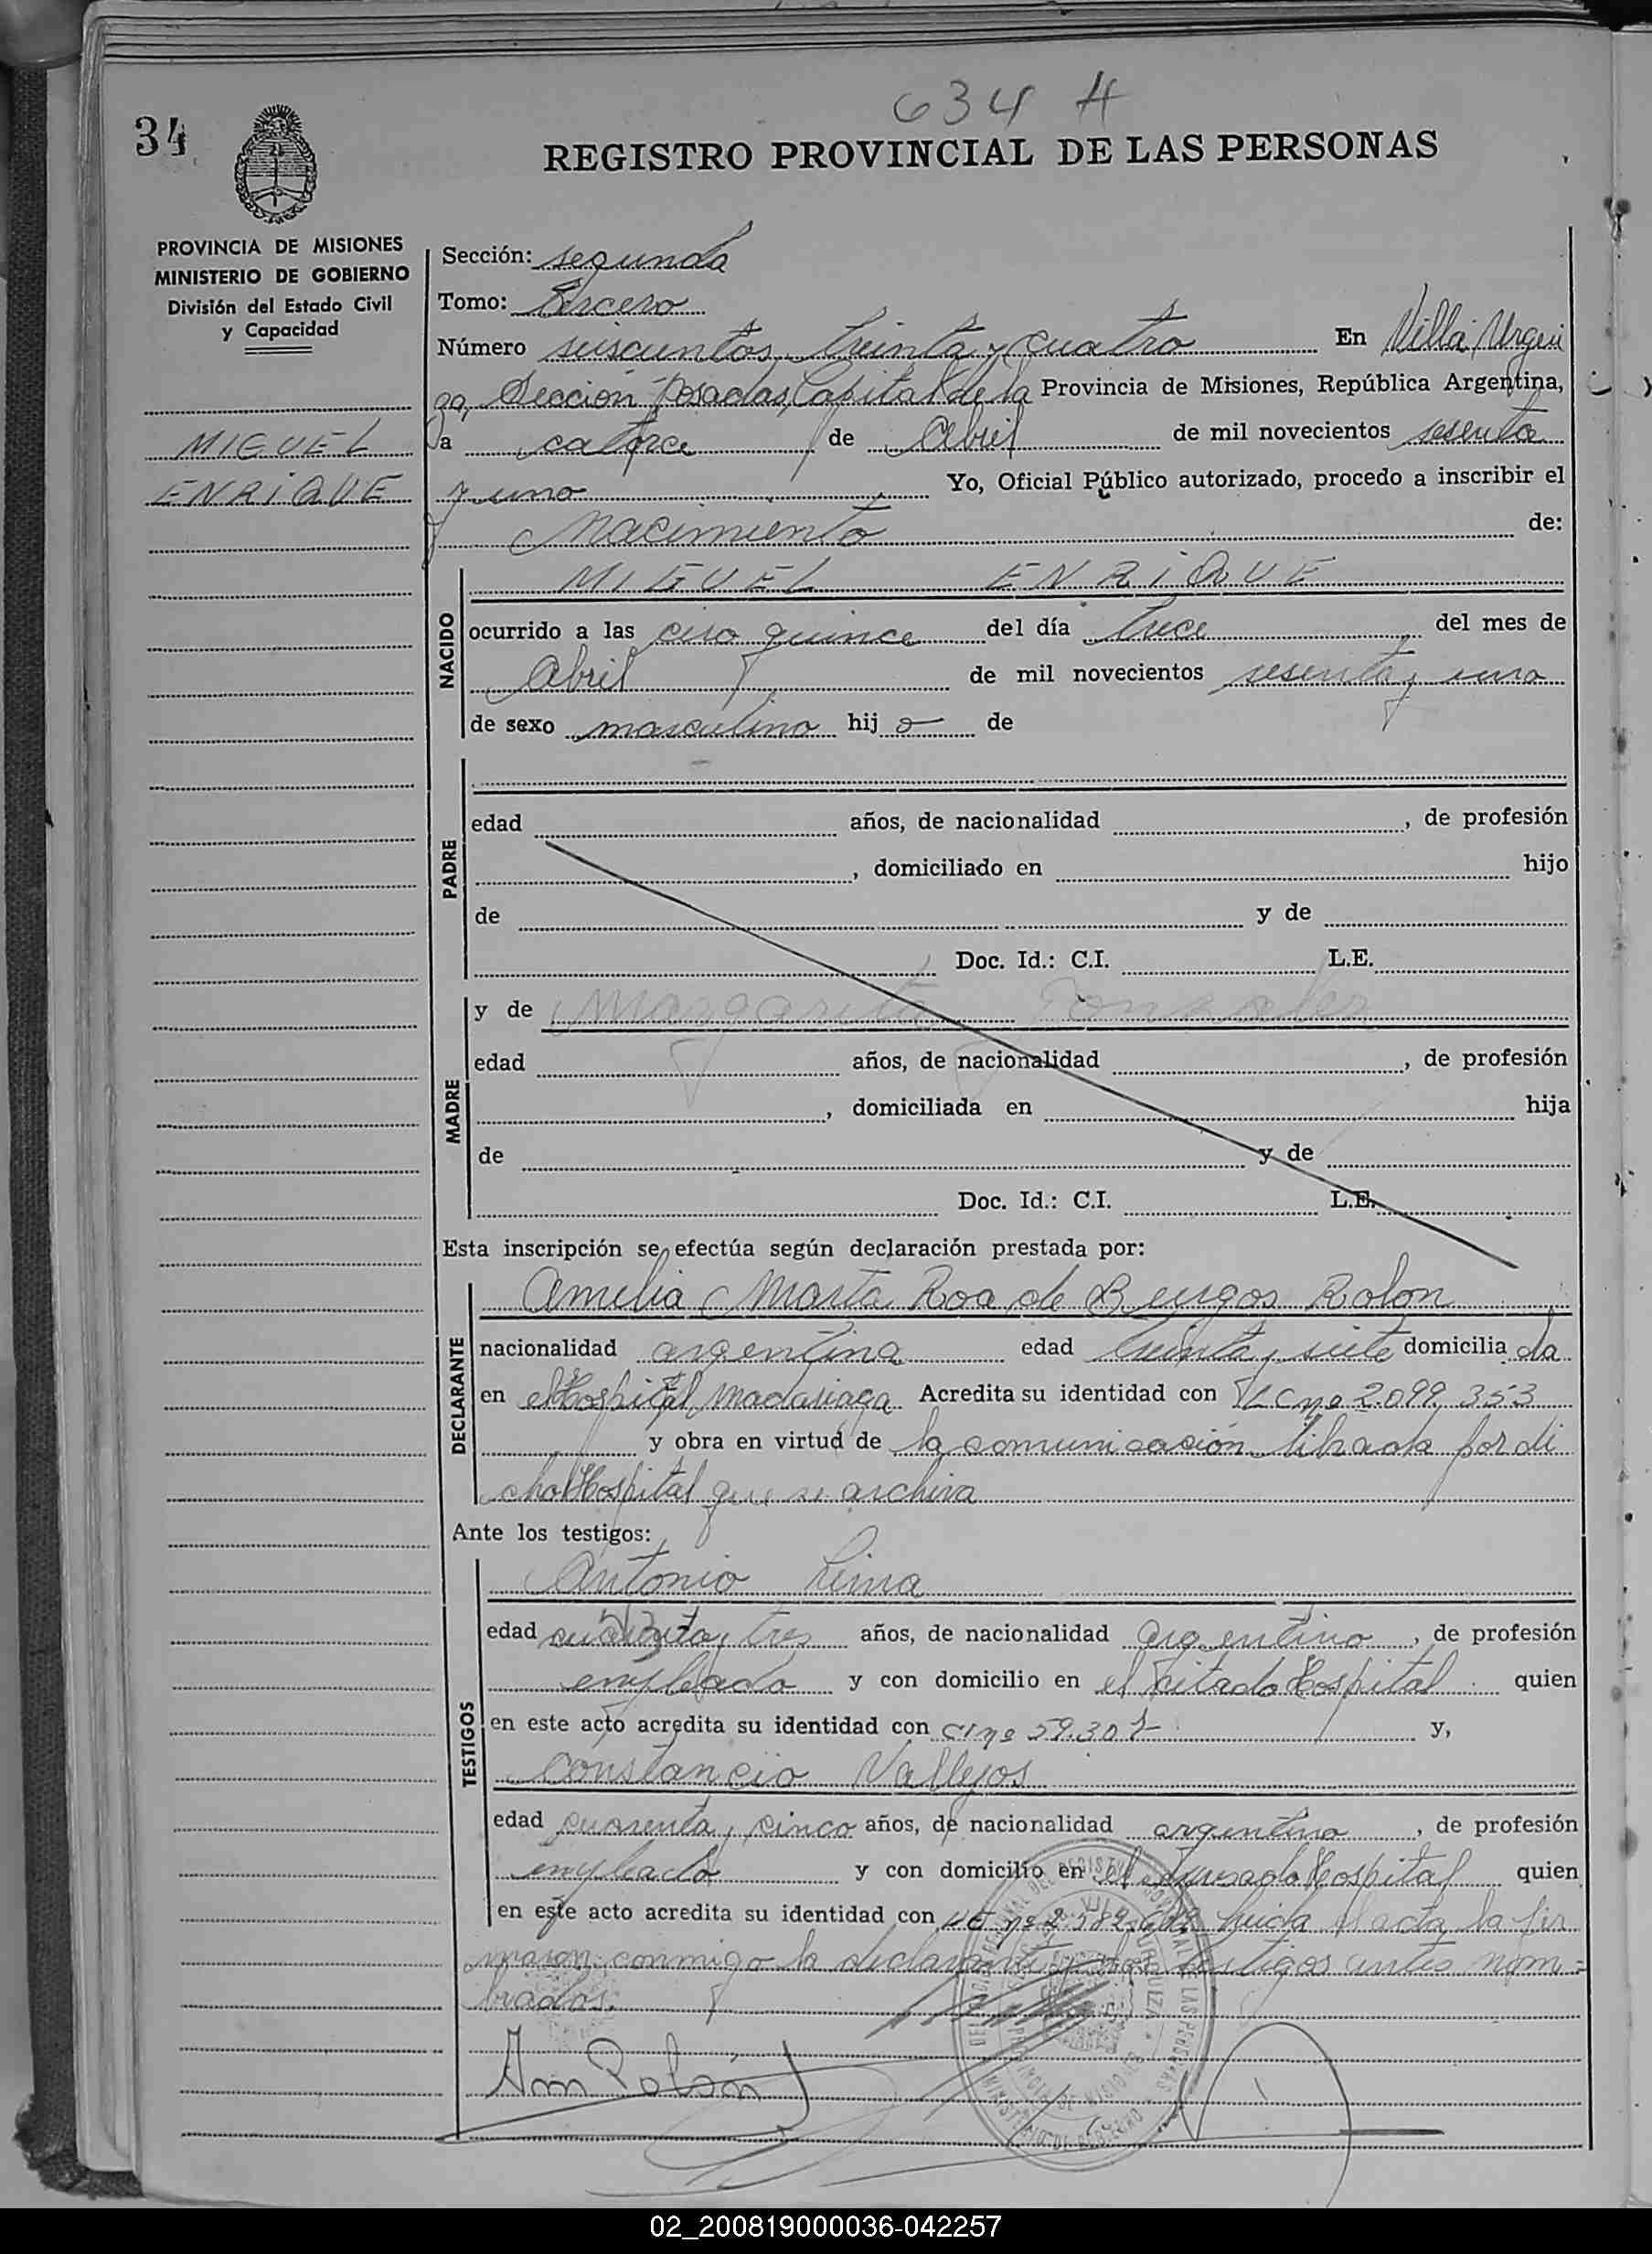 634 H
34
REGISTRO PROVINCIAL DE LAS PERSONAS
PROVINCIA DE MISIONES
MINISTERIO DE GOBIERNO
División del Estado Civil
y Capacidad
MIGUEL
ENRIQUE
Sección: segunda
Tomo: Tercero
Número seiscientos treinta y cuatro En Villa Urqui
za, Sección Posadas, Capital de la Provincia de Misiones, República Argentina,
a catorce de Abril de mil novecientos sesenta
y uno Yo, Oficial Público autorizado, procedo a inscribir el
Nacimiento de:
NACIDO
MIGUEL ENRIQUE
ocurrido a las cero quince del día trece del mes de
Abril de mil novecientos sesenta y uno
de sexo masculino hij o de
PADRE
edad años, de nacionalidad , de profesión
, domiciliado en hijo
de y de
Doc. Id.: C.I. L.E.
MADRE
y de Margarita Gonzalez
edad años, de nacionalidad , de profesión
, domiciliada en hija
de y de
Doc. Id.: C.I. L.E.
Esta inscripción se efectúa según declaración prestada por:
DECLARANTE
Amelia Marta Roa de Burgos Rolon
nacionalidad argentina edad treinta y siete domicilia da
en el Hospital Madariaga Acredita su identidad con LC nº 2.099.353
y obra en virtud de la comunicación librada por di
cho Hospital que se archiva
Ante los testigos:
TESTIGOS
Antonio Lima
edad cuarenta y tres años, de nacionalidad argentino, de profesión
empleado y con domicilio en el citado Hospital quien
en este acto acredita su identidad con CI nº 59.307 y,
Constancio Vallejos
edad cuarenta y cinco años, de nacionalidad argentino, de profesión
empleado y con domicilio en el Hospital quien
en este acto acredita su identidad con nº leida el acta la fir
maron conmigo la declarante y los testigos antes nom=
brados.
02_200819000036-042257